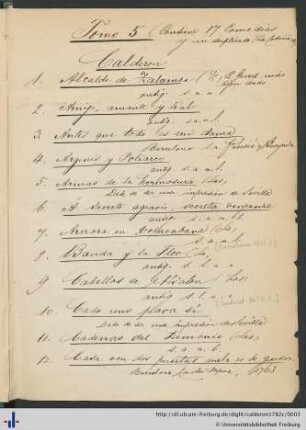 Tomo 5 (Contiene 17 Comedias
y un duplicado
Calderon
1. Alcalde de Zalamea (El,
antig. s. a. l.
2. Amigo, amante y leal
antig. s. a. l.
3. Antes que todo es mi dama
Barcelona
4. Argenis y Poliarco
antig. s. a. l.
5. Armas de la hermosura (Las,
Debe de ser una impresion de Sevilla
6. A secreto agravio, secreta venganza
antig. s. a. l.
7. Aurora en Copacabana (La,
s. a. l.
8. Banda y la Flor (La,
antig. s. l. a.
9. Cabellos de Absalon (Los,
antig. s. l. a.
10. Cada uno para sí
Debe de ser una impresion de Sevilla
11. Cadenas del Demonio (Las,
s. a. l.
12. Casa con dos puertas mala es de guardar
Barcelona, 1763
http://dl.ub.uni-freiburg.de/diglit/calderon1782c/0003
© Universitätsbibliothek Freiburg